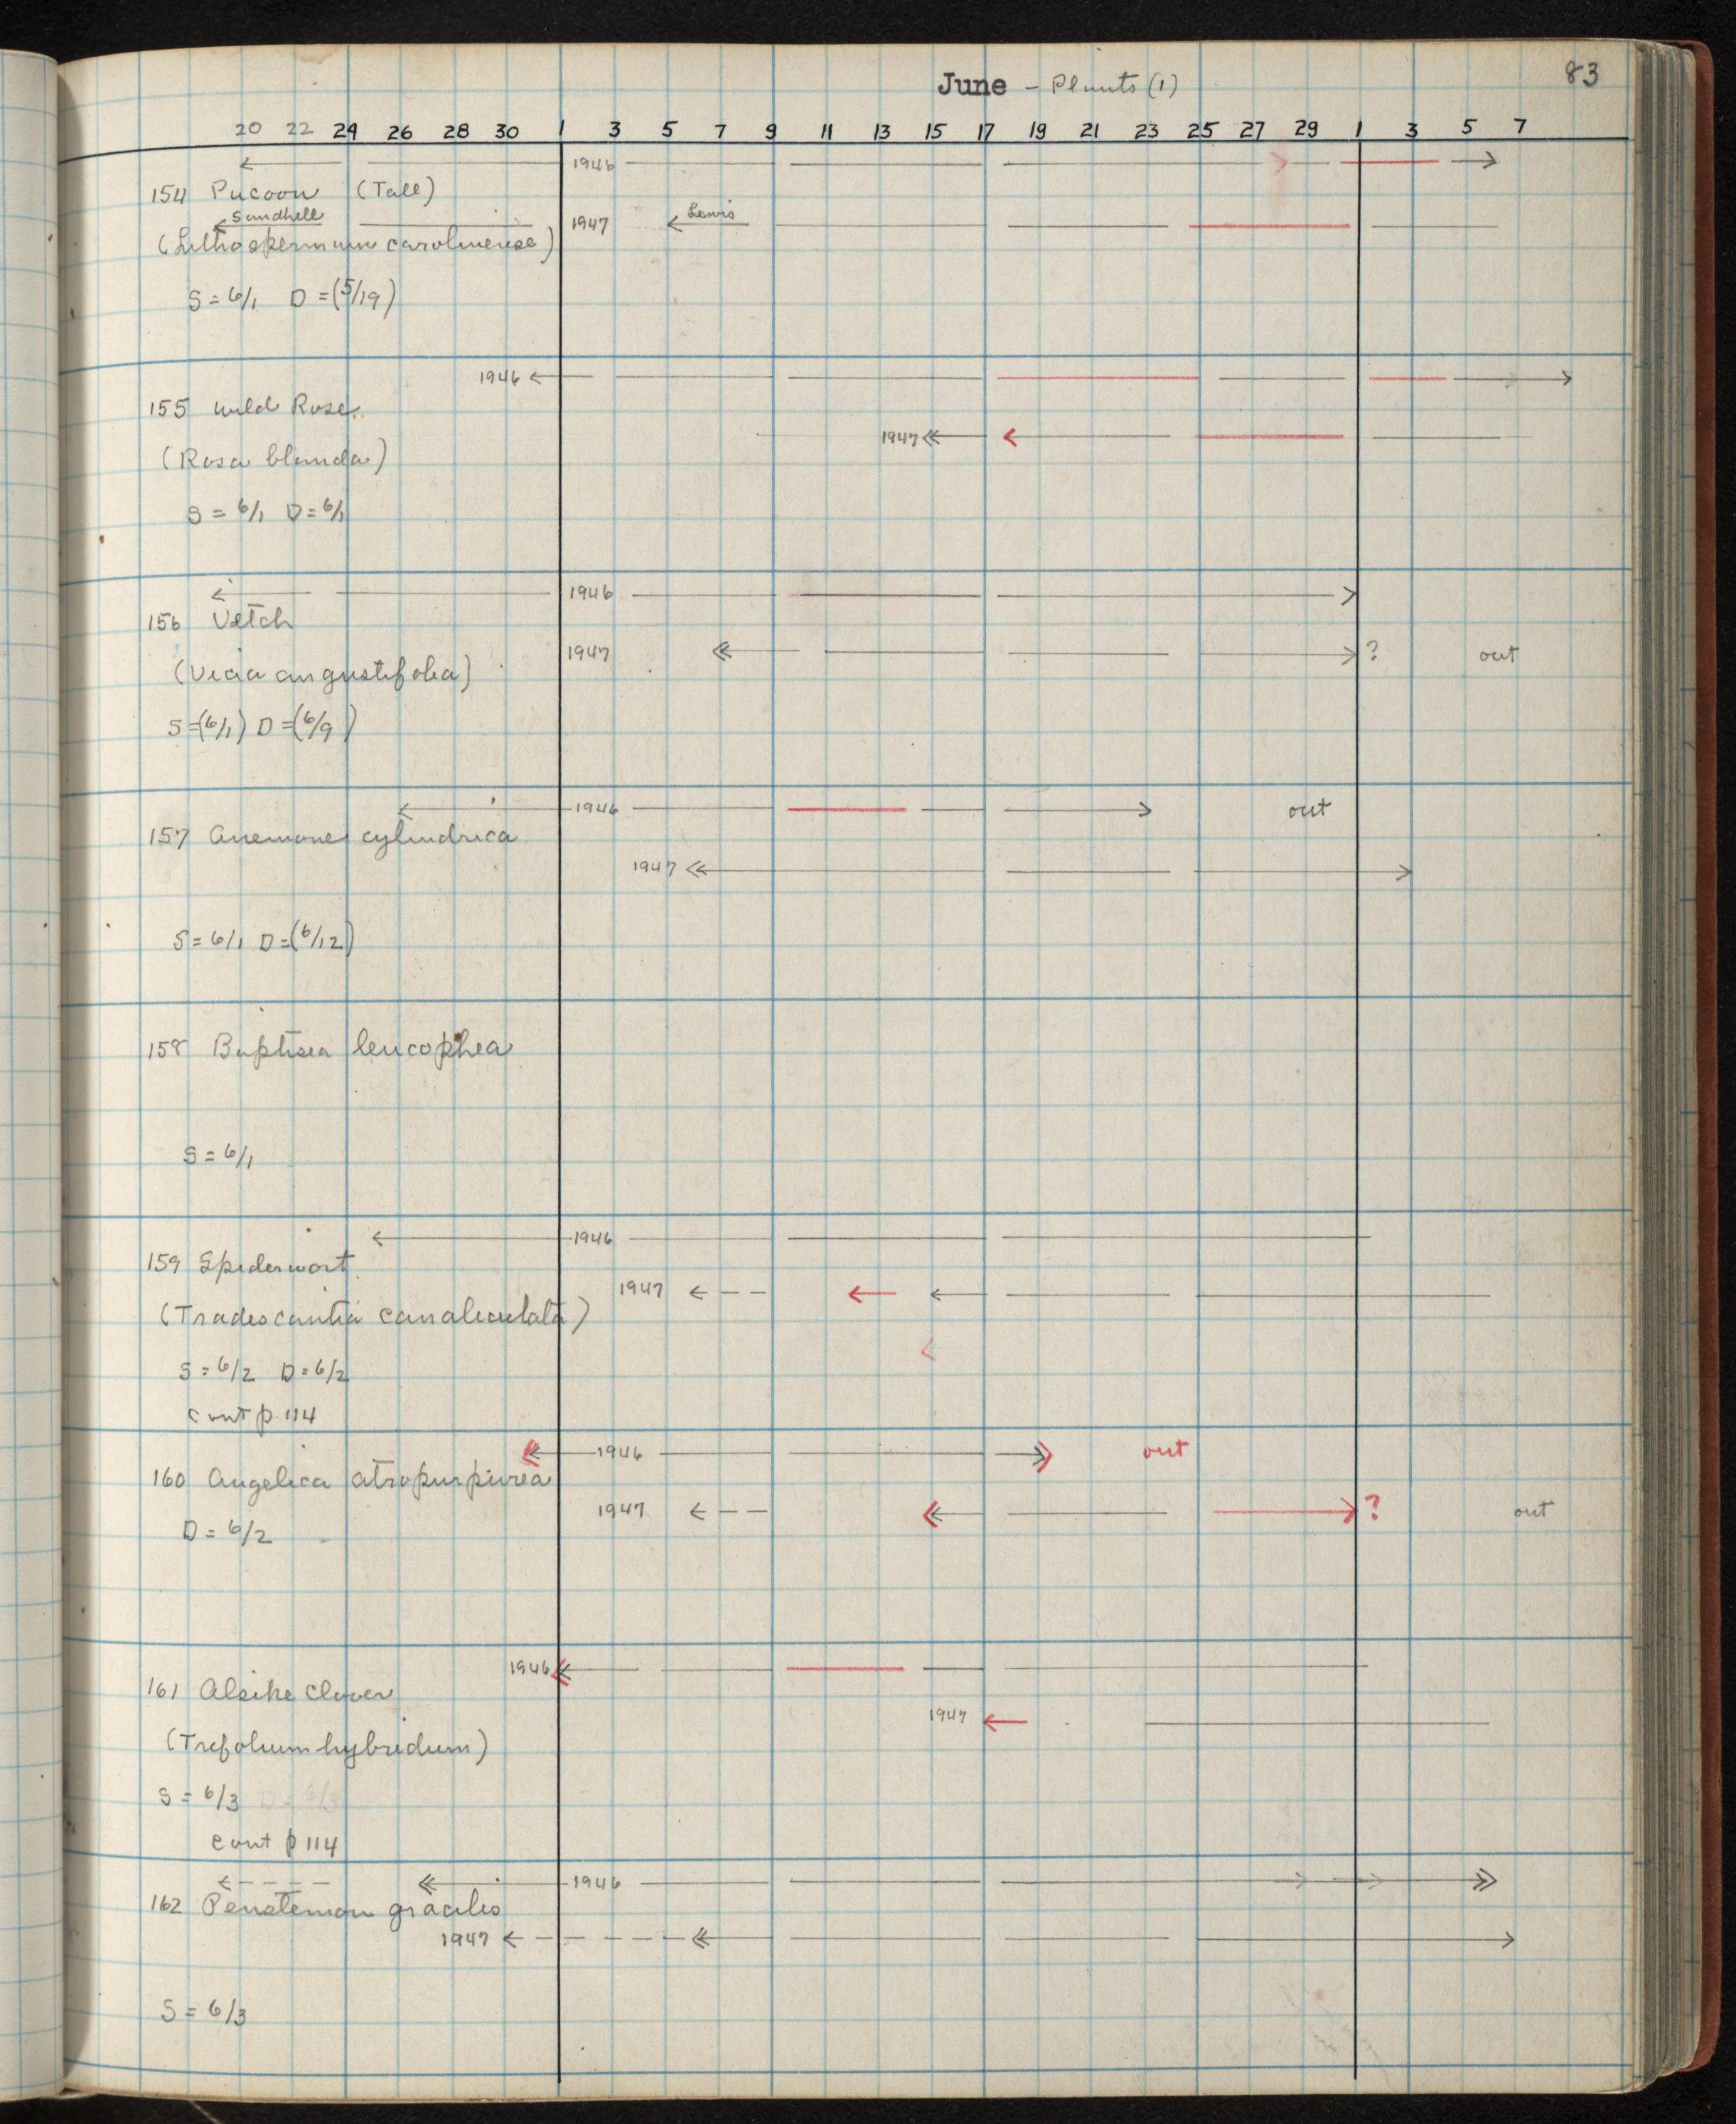 83
June - Plants (1)
20 22 24 26 28 30 1 3 5 7 9 11 13 15 17 19 21 23 25 27 29 1 3 5 7
1946
154 Pucoon (Tall)
Sandhill 1947 Lewis
(Lithospermum carolinense)
S = 6/1 D = (5/19)
1946
155 Wild Rose
1947
(Rosa blanda)
S = 6/1 D = 6/1
1946
156 Vetch
1947 ? out
(Vicia angustifolia)
S = (6/1) D = (6/9)
1946 out
157 Anemone cylindrica
1947
S = 6/1 D = (6/12)
158 Baptisia leucophea
S = 6/1
1946
159 Spiderwort
1947
(Tradescantia canaliculata)
S = 6/2 D = 6/2
cont p. 114
1946 out
160 Angelica atropurpurea
1947 ? out
D = 6/2
1946
161 Alsike Clover
1947
(Trifolium hybridum)
S = 6/3 D = 6/3
cont p 114
1946
162 Penstemon gracilis
1947
S = 6/3